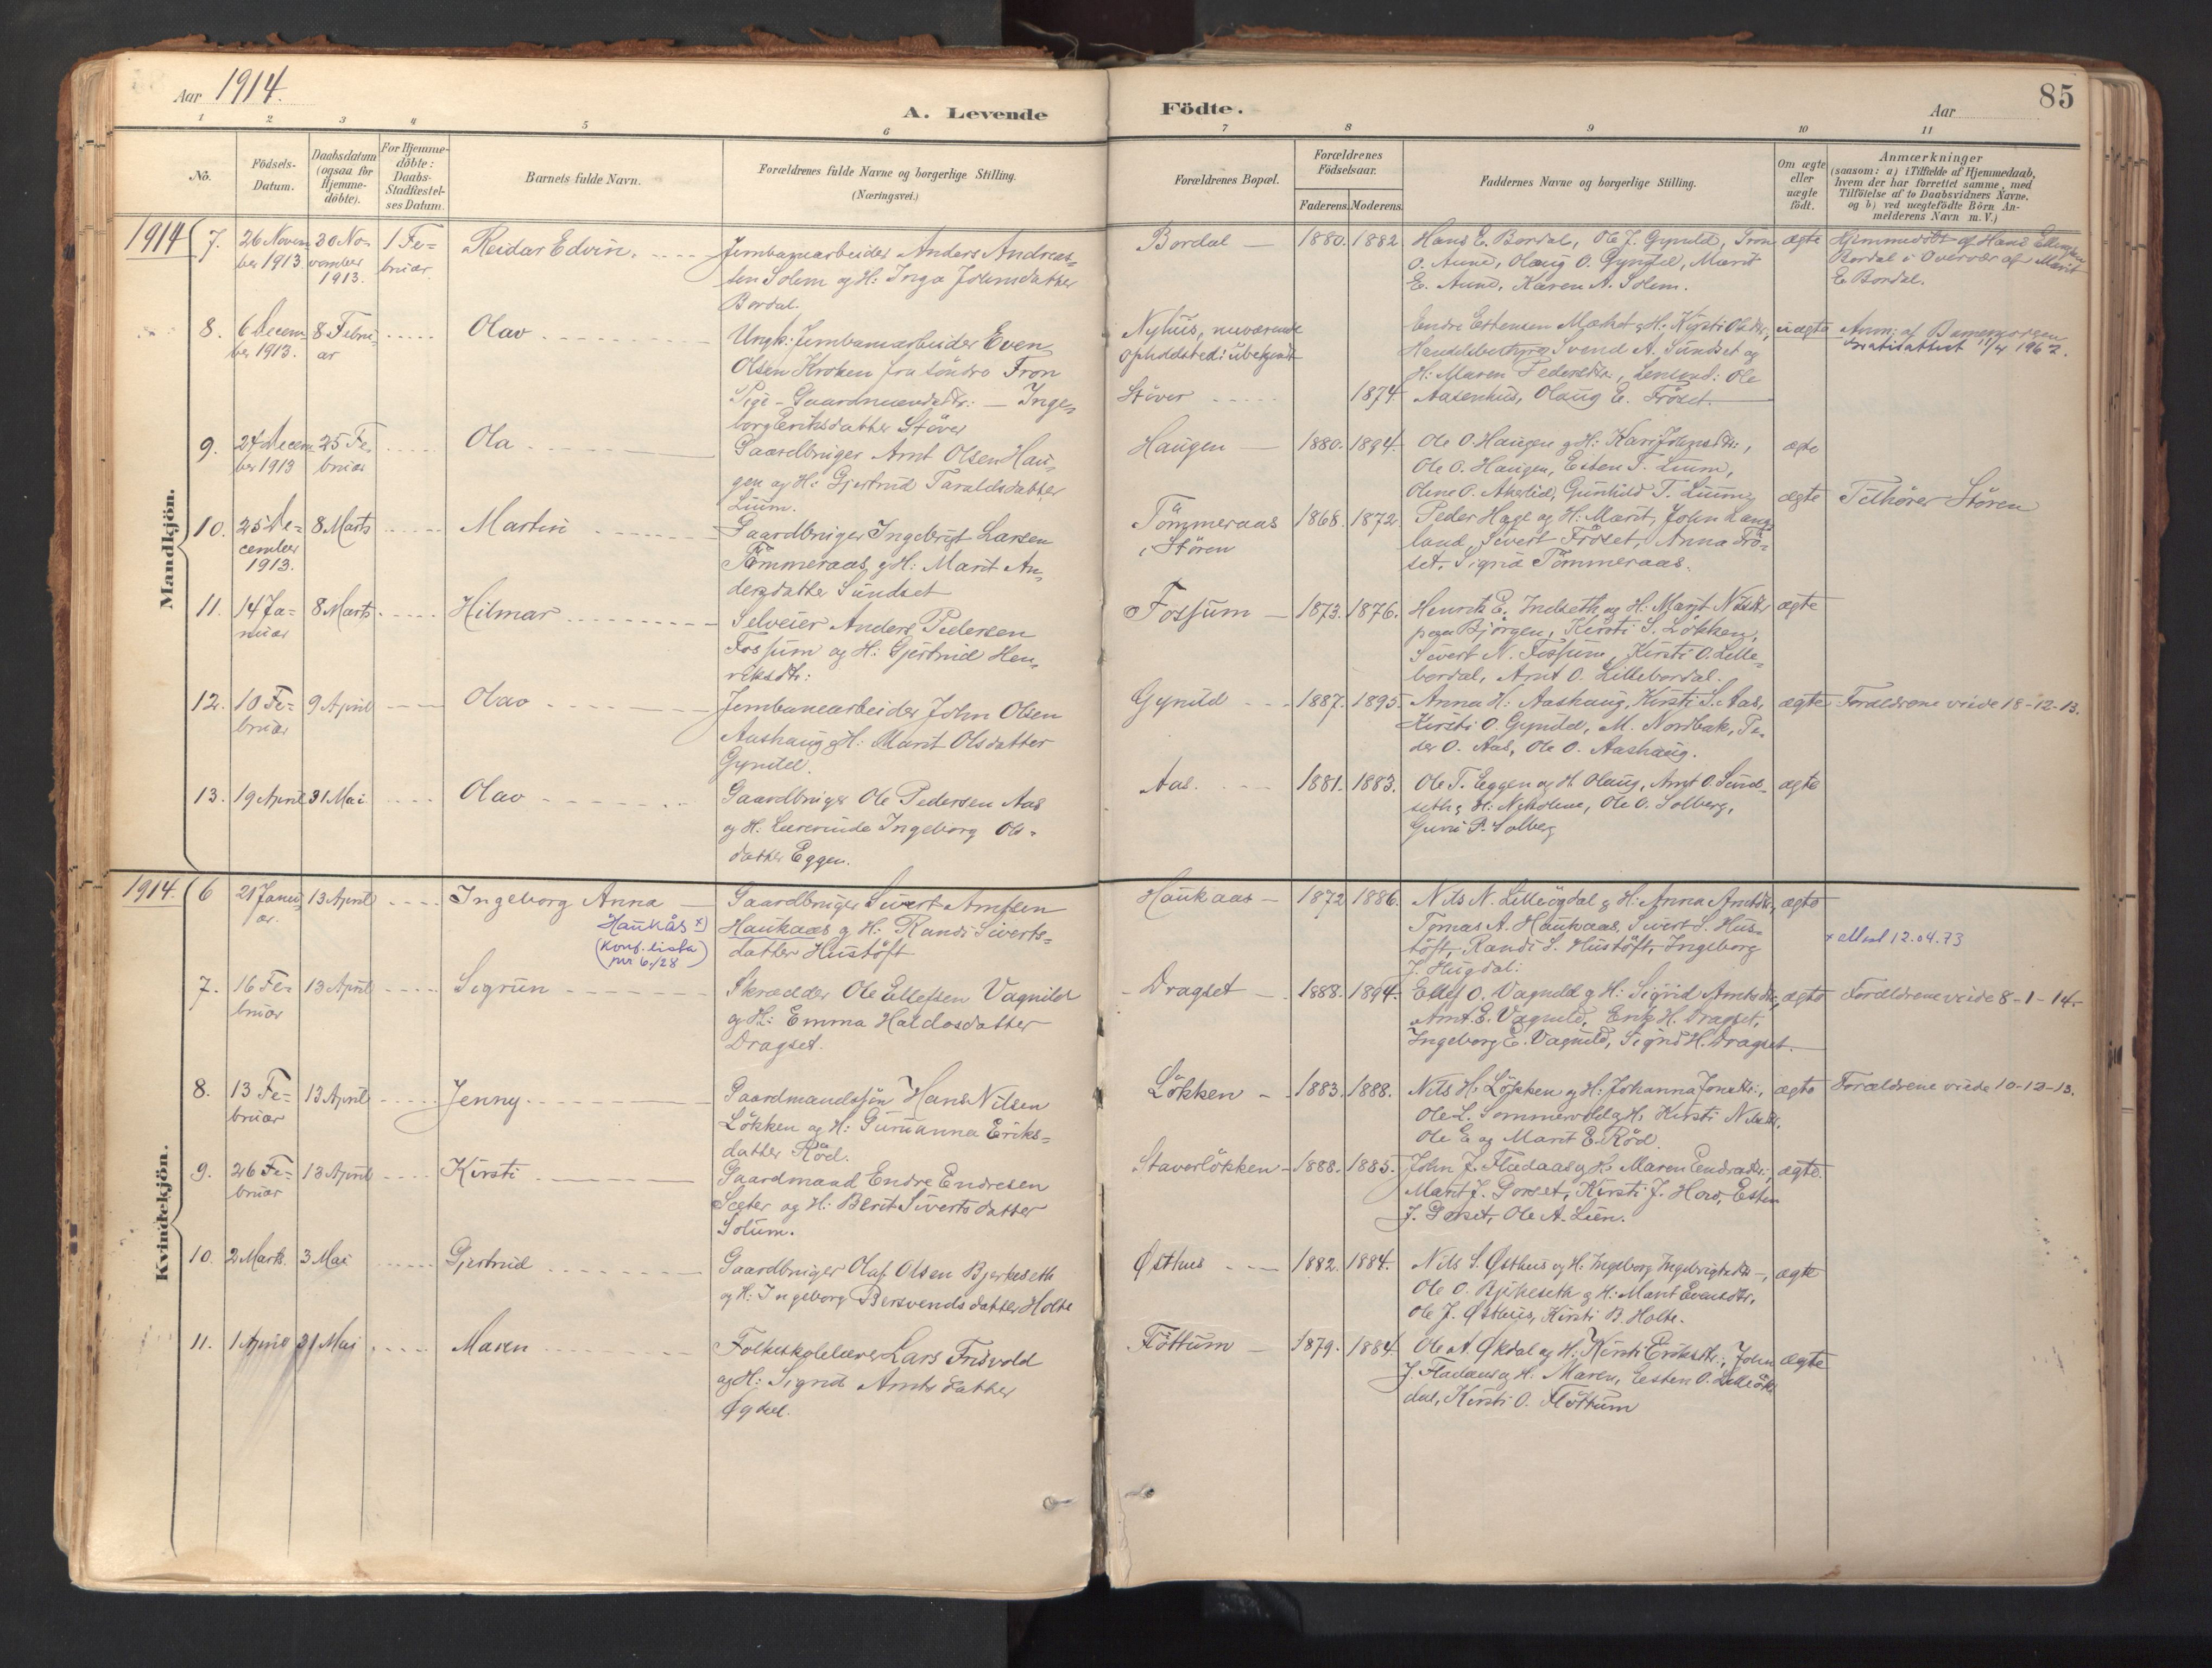 Aar 1914.
A. Levende Födte.
Aar
85
1
2
3
4
5
6
7
8
9
10
11
No.
Födsels-
Datum.
Daabsdatum
(ogsaa for
Hjemme-
döbte).
For Hjemme-
döbte:
Daabs-
Stadfæstel-
ses Datum.
Barnets fulde Navn.
Forældrenes fulde Navne og borgerlige Stilling.
(Næringsvei.)
Forældrenes Bopæl.
Forældrenes
Födselsaar.
Faderens.
Moderens.
Faddernes Navne og borgerlige Stilling.
Om ægte
eller
uægte
födt.
Anmærkninger
(saasom: a) i Tilfælde af Hjemmedaab,
hvem der har forrettet samme, med
Tilföielse af to Daabsvidners Navne.
og b) ved uægtefödte Börn An-
melderens Navn m. V.)
Mandkjön.
1914
7.
26 Novem
ber 1913
30 No-
vember
1913.
1 Fe-
bruar
Reidar Edvin.
Jernbanearbeider Anders Andreas-
sen Solem og H: Inga Johnsdatter
Bordal.
Bordal
1880.
1882
Hans E. Bordal, Ole J. Gynild, Tron
O. Aune, Olaug O. Gynild, Marit
E. Aune, Karen A. Solem.
ægte
Hjemmedöbt af Hans Ellingsen
Bordal i Overvær af Marit
E. Bordal.
8.
6 Decem-
ber 1913.
8 Febru-
ar
Olav
Ungk: Jernbanearbeider Even
Olsen Kroken fra söndre Fron
Pige - Gaardmandsdtr: - Inge-
borg Eriksdatter Stöver
Nyhus, nuværende
opholdsted: ubekjendt
Stöver
1874
Endre Estensen Moket og H: Kirsti Olsdtr,
Handelsbestyrer Svend A. Sundset og
H: Maren Pedersdtr, Lensmd: Ole
Aasenhus, Olaug E. Fröset.
uægte
Anm: af Barnemoren
Gratisattest 11/4 1962.
9.
24 Decem
ber 1913
25 Fe-
bruar
Ola
Gaardbruger Arnt Olsen Hau-
gen og H: Gjertrud Taraldsdatter
Lium.
Haugen
1880.
1894.
Ole O. Haugen og H: Kari Johnsdtr.,
Ole O. Haugen, Esten T. Lium,
Oline O. Akerlid, Gunhild T. Lium
ægte
10.
25 De-
cember
1913.
8 Marts
Martin
Gaardbruger Ingebrigt Larsen
Tömmeraas og H: Marit An-
dersdatter Sundset
Tömmeraas
i Stören
1868.
1872.
Peder Hage og H: Marit, John Lang-
land, Sivert Fröset, Anna Frö-
set, Sigrid Tömmeraas.
ægte
Tilhörer Stören
11.
14 Ja-
nuar
8 Marts
Hilmar
Selveier Anders Pedersen
Fossum og H: Gjertrud Hen-
riksdtr:
Fossum
1873.
1876.
Henrik E. Indseth og H: Marit Nilsdtr
paa Bjørgen, Kirsti S. Løkken,
Sivert N. Fossum, Kirsti O. Lille-
bordal, Arnt O. Lillebordal.
ægte
12.
10 Fe-
bruar
9 April
Olav
Jernbanearbeider John Olsen
Aashaug og H: Marit Olsdatter
Gynild.
Gynild
1887.
1895.
Anna H. Aashaug, Kirsti S. Aas,
Kirsti O. Gynild, M. Nordbak, Pe-
der O. Aas, Ole O. Aashaug.
ægte
Forældrene viede 18-12-13.
13.
19 April
31 Mai
Olav
Gaardbruger Ole Pedersen Aas
og H: Lærerinde Ingeborg Ols-
datter Eggen.
Aas.
1881.
1883.
Ole T. Eggen og H. Olaug, Arnt O. Sund-
seth og H: Nikoline, Ole O. Solberg,
Guru P. Solberg
ægte
Kvindekjön.
1914.
6
21 Janu-
ar.
13 April
Ingeborg Anna
Haukås x)
(Konf. lista
nr 6/28)
Gaardbruger Sivert Arntsen
Haukaas og H: Randi Siverts-
datter Hustöft
Haukaas
1872
1886.
Nils N. Lilleögdal og H: Anna Arntsdtr,
Tomas A. Haukaas, Sivert S. Hus-
töft, Randi S. Hustöft, Ingeborg
J. Hugdal.
ægte
x Meld 12.04.73
7.
16 Fe-
bruar
13 April
Sigrun
Skrædder Ole Ellefsen Vagnild
og H: Emma Haldosdatter
Dragset.
Dragset
1888.
1894.
Ellef O. Vagnild og H: Sigrid Arntsdtr,
Arnt E. Vagnild, Erik H. Dragset,
Ingeborg E. Vagnild, Sigrid H. Dragset.
ægte
Forældrene viede 8-1-14.
8.
13 Fe-
bruar
13 April
Jenny
Gaardmandssøn Hans Nilsen
Lökken og H: Gurianna Eriks-
datter Röd.
Lökken
1883.
1888.
Nils H. Lökken og H: Johanna Jonsdtr.,
Ole L. Sommervold og H: Kirsti Nilsdtr,
Ole E. og Marit E. Röd.
ægte
Forældrene viede 10-12-13.
9.
26 Fe-
bruar
13 April
Kirsti
Gaardmand Endre Endresen
Sæter og H: Berit Sivertsdatter
Solum.
Staverlökken
1888.
1885.
John J. Fladaas og H. Maren Endresdtr.;
Marit J. Gorset, Kirsti J. Hov, Esten
J. Gorset, Ole A. Lien.
ægte.
10.
2 Marts.
3 Mai
Gjertrud
Gaardbruger Olaf Olsen Bjerkeseth
og H: Ingeborg Bersvendsdatter Holte
Østhus
1882.
1884.
Nils S. Østhus og H. Ingeborg Ingebrigtsdtr,
Ole O. Bjerkeseth og H: Marit Evensdtr,
Ole J. Østhus, Kirsti B. Holte.
ægte
11.
1 April
31 Mai
Maren
Folkeskolelærer Lars Frisvold
og H: Sigrid Arntsdatter
Øgdal.
Flöttum
1879.
1884
Ole A. Økdal og H: Kirsti Eriksdtr.; John
J. Fladaas og H. Maren, Esten O. Lilleök-
dal, Kirsti O. Flöttum
ægte